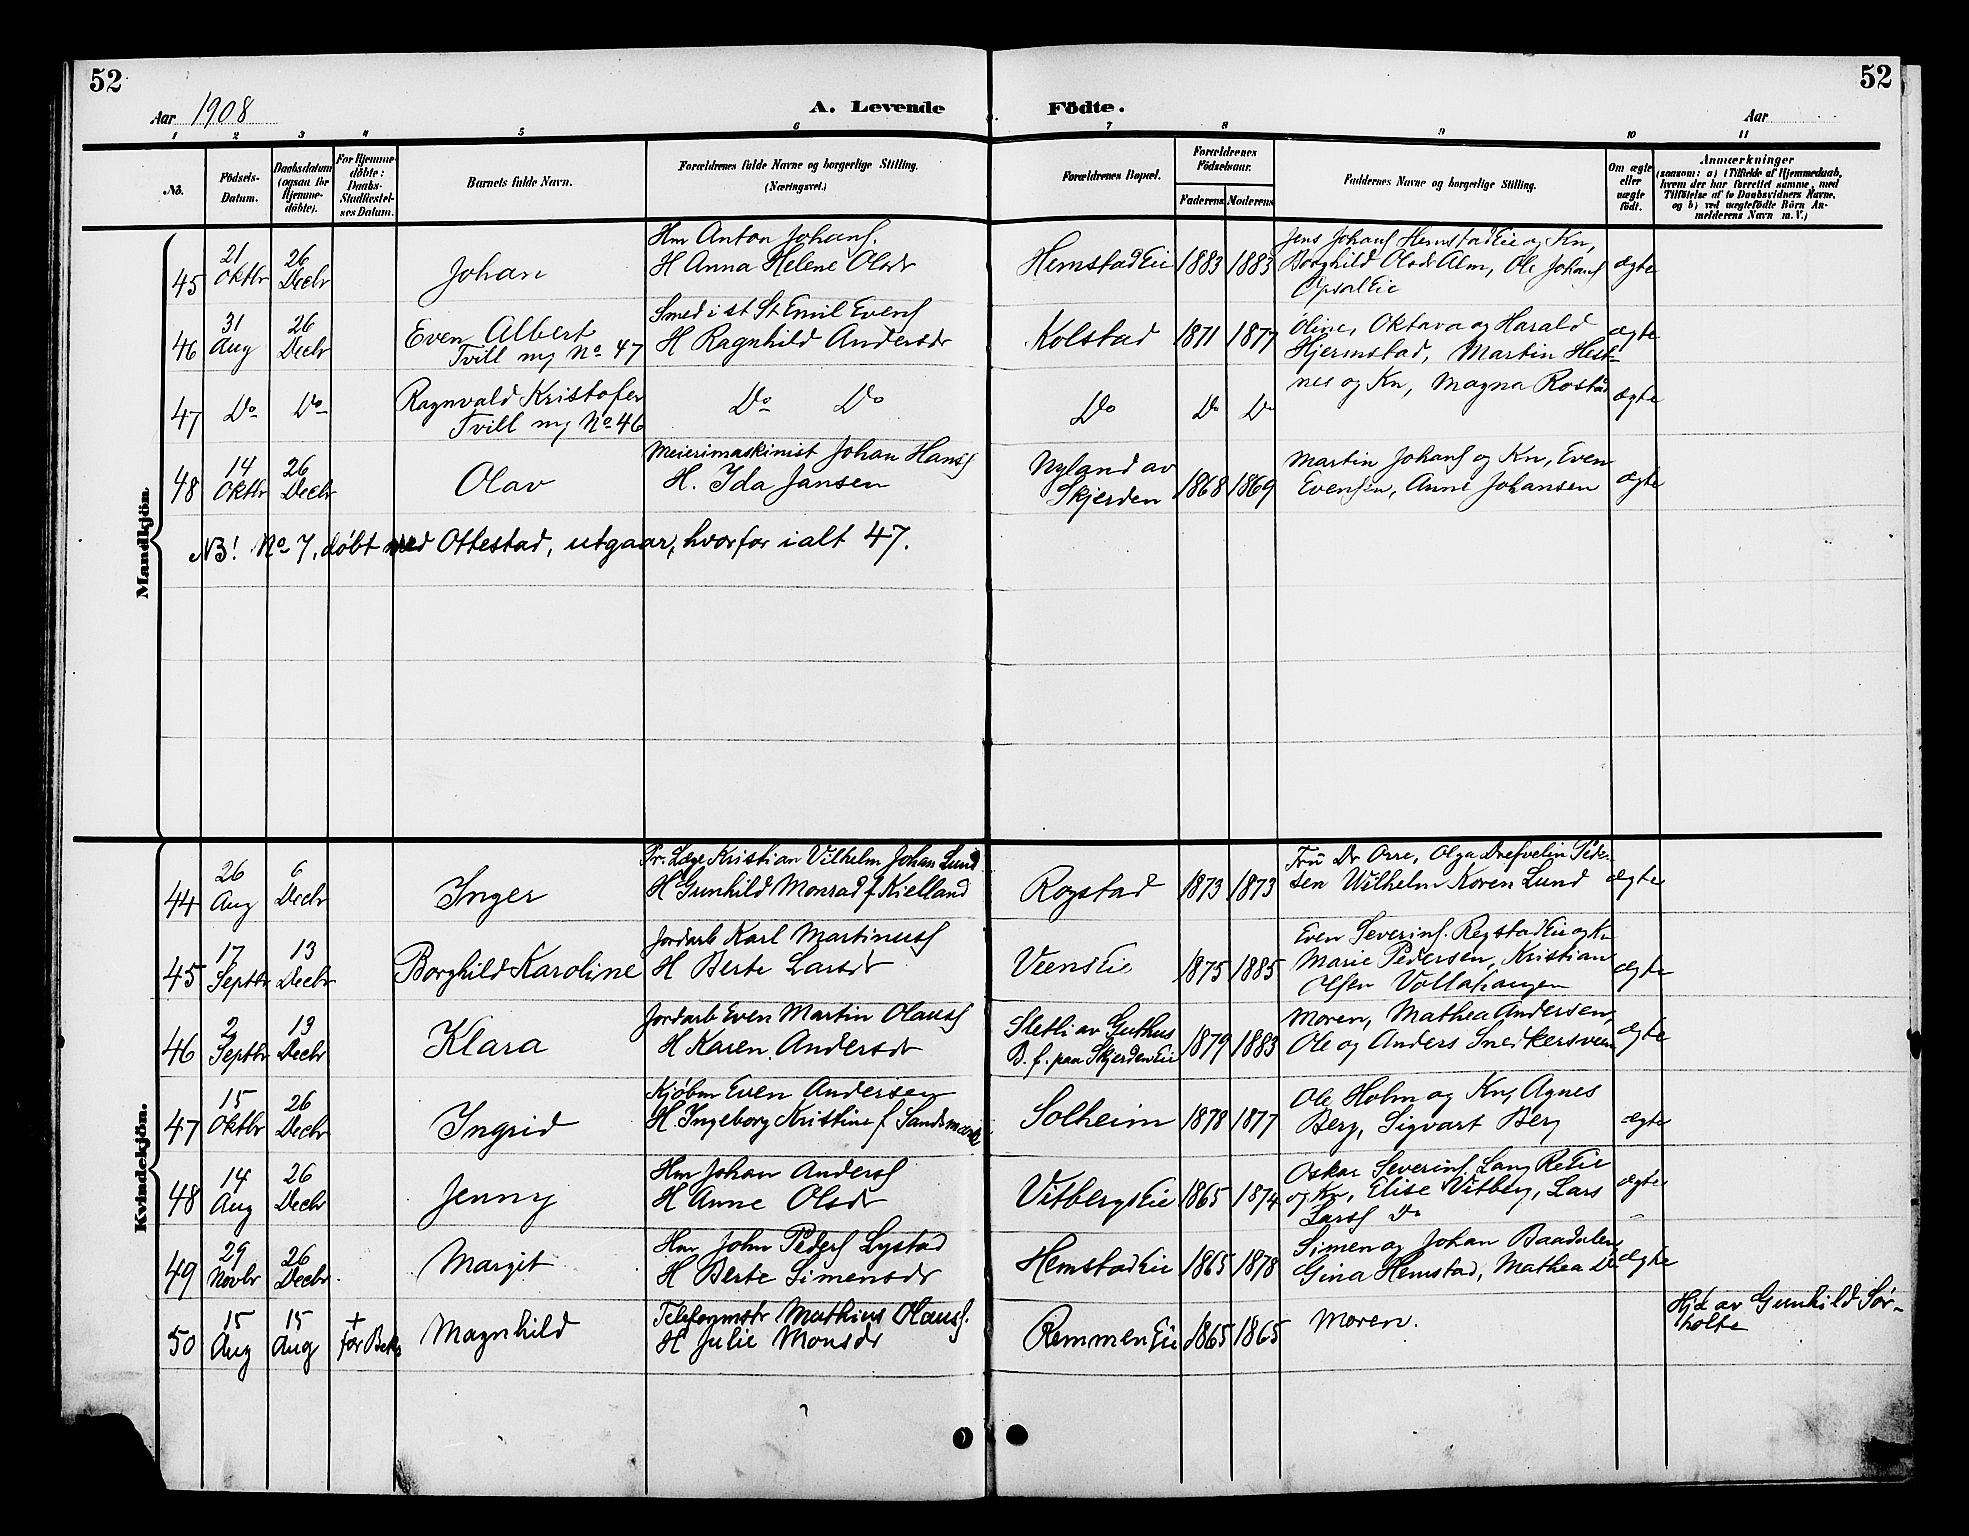 52
52
Aar 1908
A. Levende
Födte.
Aar
1 2 3 4 5 6 7 8 9 10 11
No.
Födsels-Datum.
Daabsdatum (ogsaa for Hjemme-döbte).
For Hjemme-döbte: Daabs-Stadfæstel-ses Datum.
Barnets fulde Navn.
Forældrenes fulde Navne og borgerlige Stilling.
(Næringsvei.)
Forældrenes Bopæl.
Forældrenes Födselsaar.
Faderens Moderens
Faddernes Navne og borgerlige Stilling.
Om ægte eller uægte födt.
Anmærkninger
(saasom: a) i Tilfælde af Hjemmedaab,
hvem der har forrettet samme, med
Tilföielse af to Daabsvidners Navne,
og b) ved uægtefödte Börn An-
melderens Navn m. V.)
Mandkjön.
45 21 Oktbr 26 Decbr Johan
Hm Anton Johans.
H Anna Helene Olsdr
HemstadEie 1883 1883
Jens Johans HemstadEie og Kn,
Borghild Olsdr Alm, Ole Johans
OpsalEie
ægte
46 31 Aug 26 Decbr Even Albert
Tvill m No 47
Smed i st St Emil Evens
H Ragnhild Andersdr
Kolstad 1871 1877
Oline, Oktava og Harald
Hjermstad, Martin Hest-
ægte
47 Do Do Ragnvald Kristofer
Tvill m No 46
Do Do
Do Do Do
nes og Kn, Magna Rostad
ægte
48 14 Oktbr 26 Decbr Olav
Meierimaskinist Johan Hanss
H. Ida Jansen
Nyland av
Skjerden 1868 1869
Martin Johans og Kn, Even
Evensen, Anne Johansen
ægte
NB! No 7, døbt med Ottestad, utgaar, hvorfor ialt 47.
Kvindekjön.
44 26 Aug 6 Decbr Inger
Pr. Læge Kristian Vilhelm Johan Lund
H Gunhild Monrad f Kielland
Rogstad 1873 1873
Fru Dr Orre, Olga Peder-
sen Wilhelm Koren Lund
ægte
45 17 Septbr 13 Decbr Borghild Karoline
Jordarb Karl Martinuss
H Berte Larsdr
VeensEie 1875 1885
Even Severins. RogstadEie og Kn
Marie Pedersen, Kristian
Olsen Vollahaugen
ægte
46 2 Septbr 13 Decbr Klara
Jordarb Even Martin Olauss
H Karen Andersdr
Sletli av Guthus
B. f. paa SkjerdenEie 1879 1883
Moren, Mathea Andersen,
Ole og Anders Snekkersveen
ægte
47 15 Oktbr 26 Decbr Ingrid
Kjøbm Even Andersen
H. Ingeborg Kristine f Sandsmark
Solheim 1878 1877
Ole Holm og Kn, Agnes
Berg, Sigvart Berg
ægte
48 14 Aug 26 Decbr Jenny
Hm Johan Anderss
H Anne Olsdr
VitbergsEie 1865 1874
Oskar Severins. Lang ReEie
og Kn, Elise Vitberg, Lars
Larss Do
ægte
49 29 Novbr 26 Decbr Margit
Hm John Peders Lystad
H Berte Simensdr
HemstadEie 1865 1878
Simen og Johan Baadalen
Gina Hemstad, Mathea Do
ægte
50 15 Aug 15 Aug + før Bekr Magnhild
Telefonmstr Mathias Olauss.
H Julie Monsdr
RemmenEie 1865 1865
Moren.
Hjd av Gunhild Sør-
holte